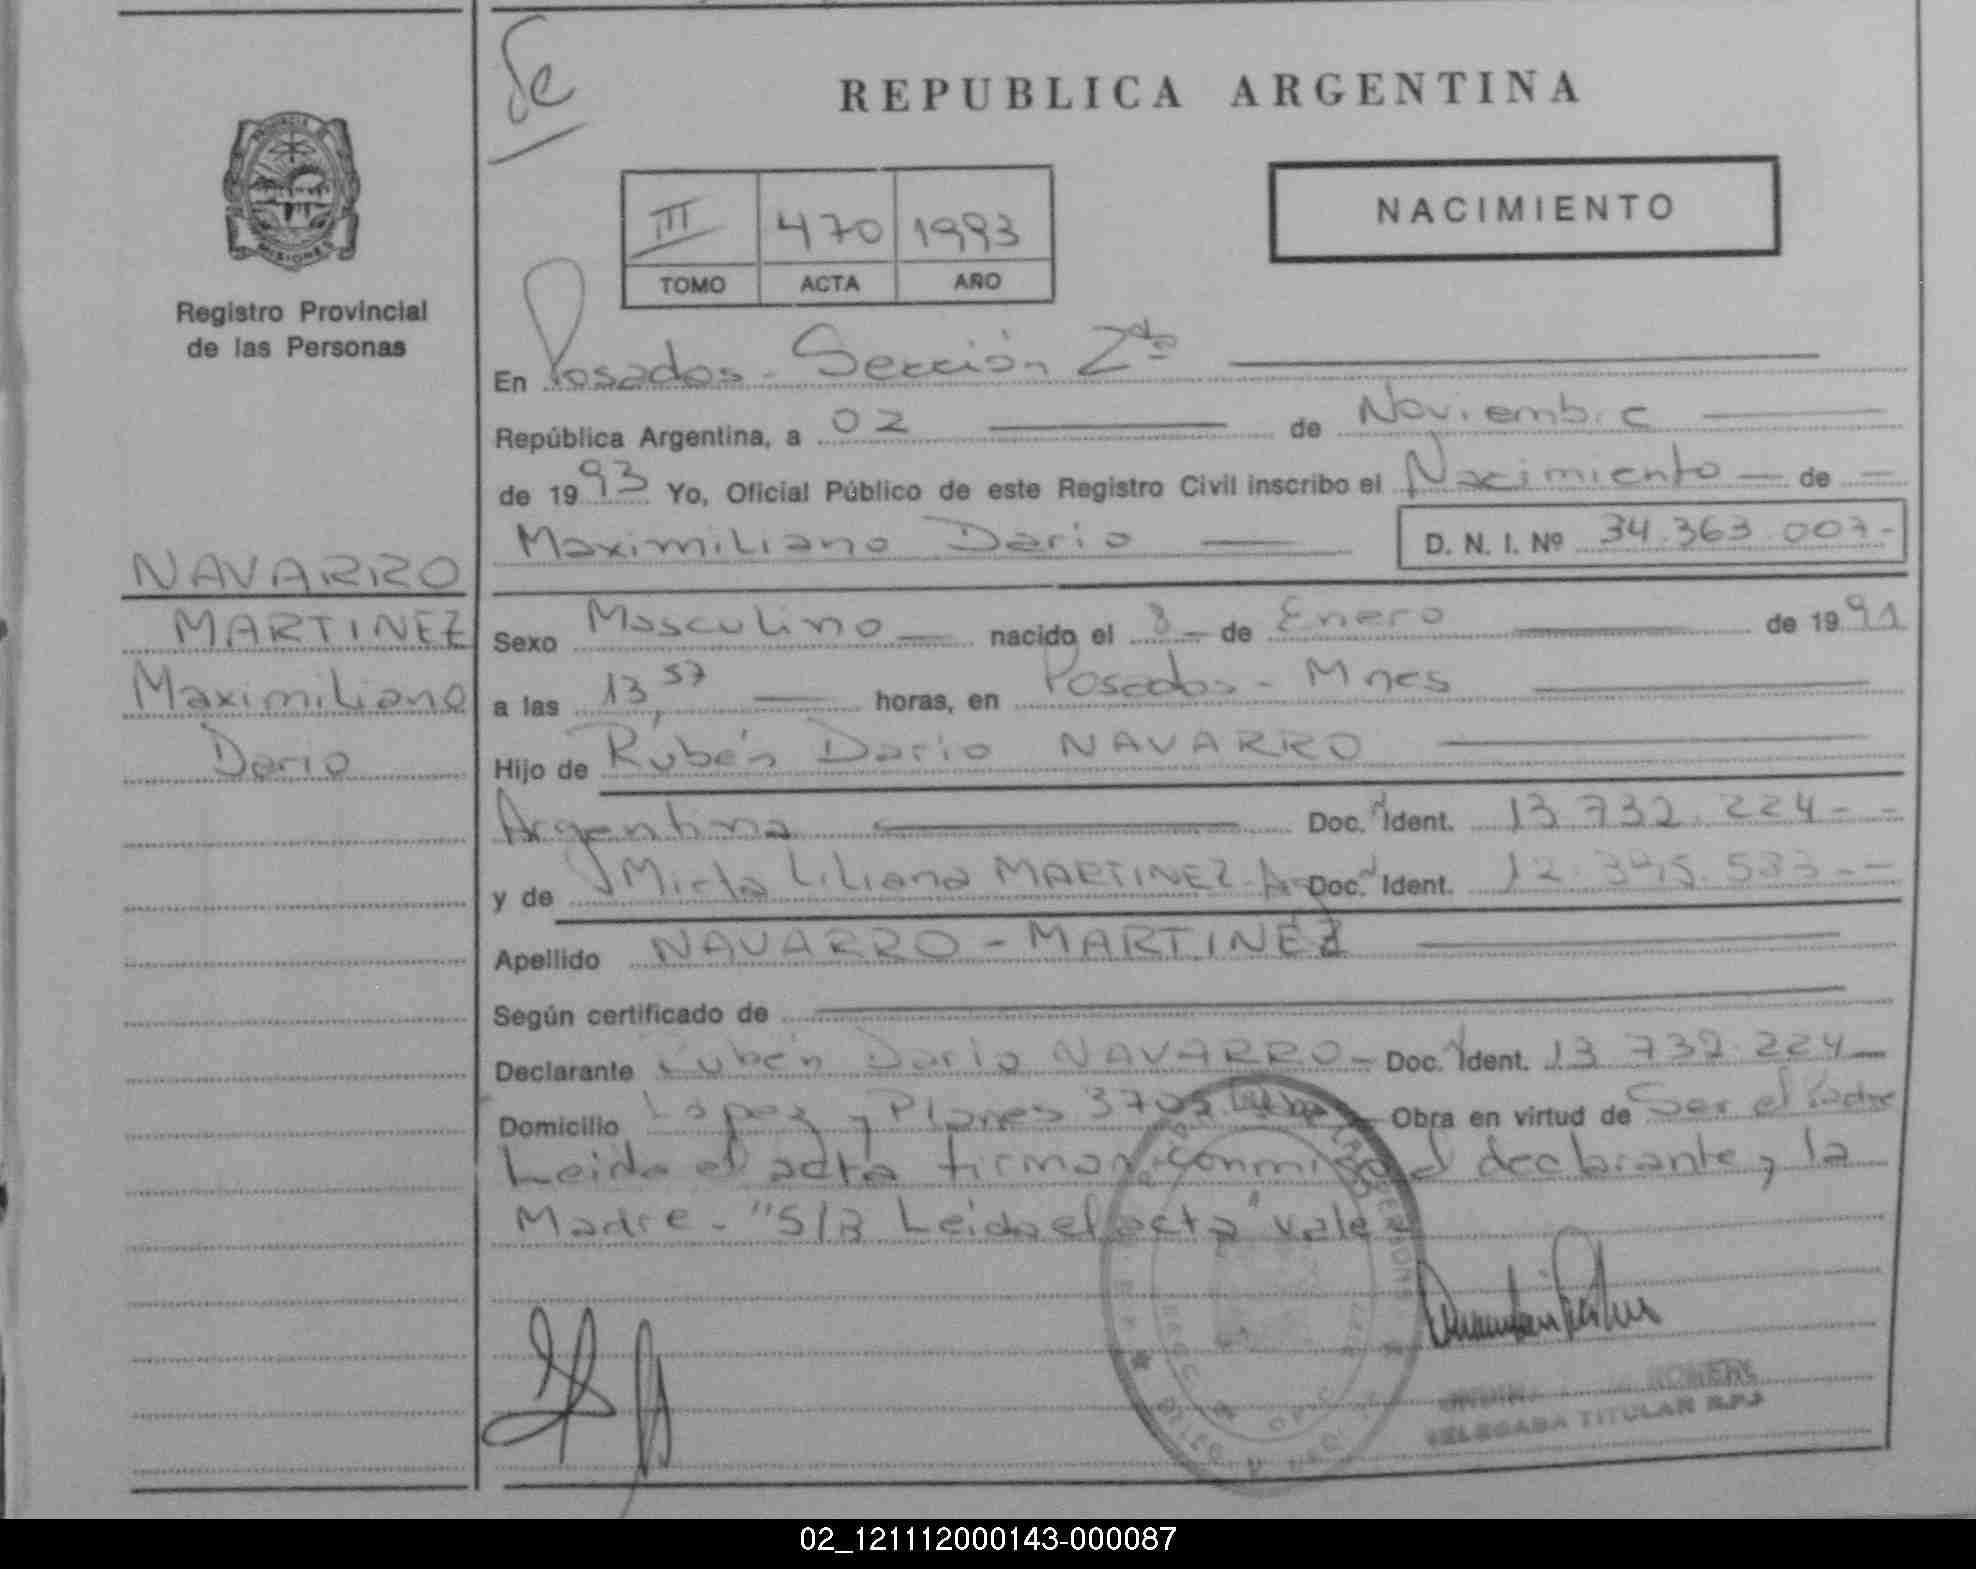 Se
REPUBLICA ARGENTINA
PROVINCIA DE
MISIONES
Registro Provincial
de las Personas
III 470 1993
TOMO ACTA AÑO
NACIMIENTO
En Posadas - Sección 2da
República Argentina, a 02 de Noviembre
de 1993 Yo, Oficial Público de este Registro Civil inscribo el Nacimiento de
Maximiliano Dario D. N. I. Nº 34.363.007-
NAVARRO
MARTINEZ
Maximiliano
Dario
Sexo Masculino nacido el 8 de Enero de 1991
a las 13,57 horas, en Posadas - Mnes
Hijo de Rubén Dario NAVARRO
Argentina Doc. Ident. 13.732.224
y de Mirta Liliana MARTINEZ - Arg Doc. Ident. 12.395.533
Apellido NAVARRO - MARTINEZ
Según certificado de
Declarante Rubén Dario NAVARRO - Doc. Ident. 13.732.224
Domicilio Lopez y Planes Obra en virtud de Ser el Padre
Leida el acta firman conmigo el declarante y la
Madre - "S/R Leida el acta" vale
DELEGADA TITULAR R.P.P
02_121112000143-000087